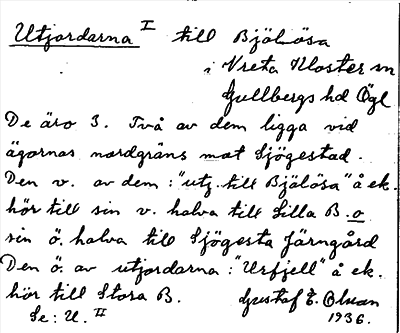 Utjordarna I till Bjälösa
i Vreta Kloster sn
Gullbergs hd Ögl
De äro 3. Två av dem ligga vid
ägornas nordgräns mot Sjögestad.
Den v. av dem: "utj. till Bjälösa" å ek.
hör till sin v. halva till Lilla B. o
sin ö. halva till Sjögesta Järngård
Den ö. av utjordarna: "Ursfjell" å ek.
hör till Stora B. Gustaf E. Olsson
Se: U. II 1936.